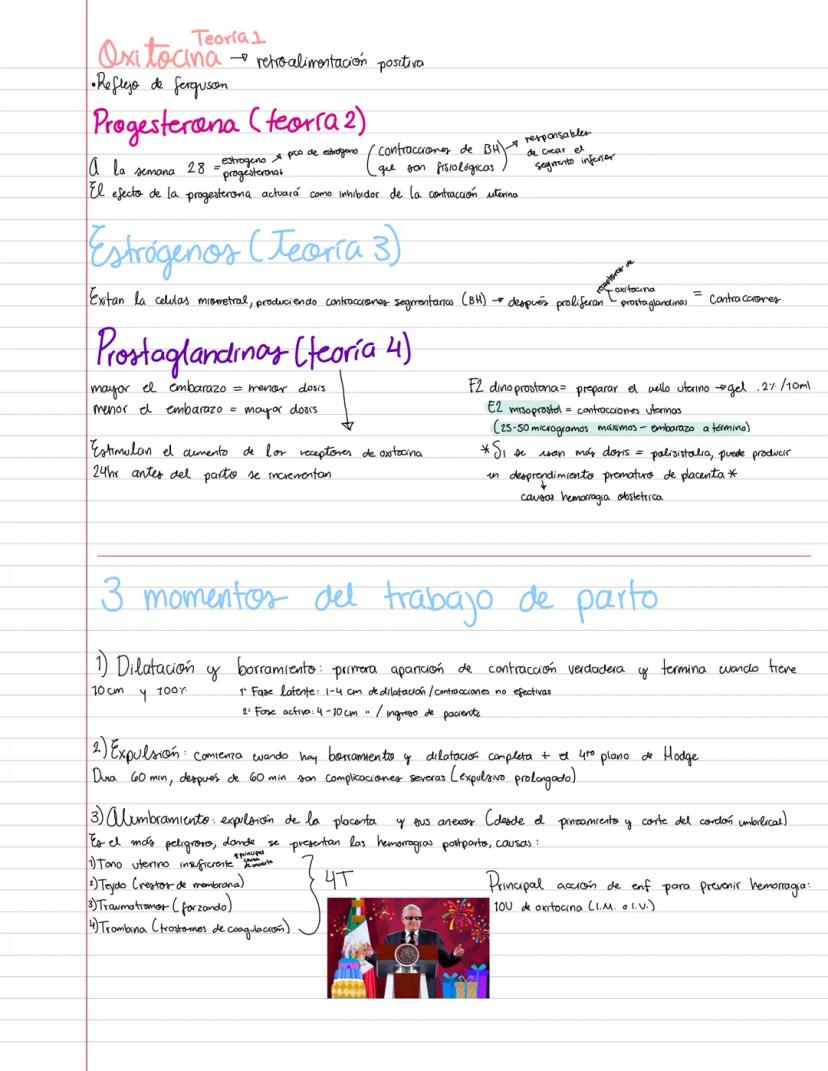 Teoría 1
Oxitocina → retroalimentación positiva
•Reflejo de ferguson
Progesterona (teoría 2)
A la semana 28 = estrogeno ↗ pico de estrogeno (contracciones de BH) ↗ responsables
progesterona↓ (que son fisiológicas) de crear el
segmento inferior
El efecto de la progesterona actuará como inhibidor de la contracción uterina
Estrógenos (Teoría 3)
Exitan la celulas miometral, produciendo contracciones segmentarias (BH) → después proliferan receptores de oxitocina prostaglandinas = Contracciones
Prostaglandinas (teoría 4)
mayor el embarazo = menor dosis
menor el embarazo = mayor dosis
Estimulan el aumento de los receptores de oxitocina
24hr antes del parto se incrementan
F2 dinoprostona = preparar el uello uterino → gel .2% /10ml
E2 misoprostol = contracciones uterinas
(25-50 microgramos máximos - embarazo a término)
*Si se usan más dosis = polisistolia, puede producir
un desprendimiento prematuro de placenta *
↓
causas hemorragia obstetrica
3 momentos del trabajo de parto
1) Dilatación y borramiento: primera aparición de contracción verdadera y termina cuando tiene
10 cm y 100%
1° Fase latente: 1-4 cm de dilatación / contracciones no efectivas
2° Fase activa: 4-10 cm " / ingreso de paciente
2) Expulsión: comienza cuando hay borramiento y dilatación completa + el 4to plano de Hodge
Dura 60 min, después de 60 min son complicaciones severas (expulsivo prolongado)
3) Alumbramiento: expulsión de la placenta y sus anexos (desde el pinzamiento y corte del cordón umbilical)
Es el más peligroso, donde se presentan las hemorragias postparto, causas:
1) Tono uterino insuficiente * principal causa de muerte
2) Tejido (restos de membrana)
3) Traumatismos (forzando)
4) Trombina (trastornos de coagulación)
4T
Principal acción de enf para prevenir hemorragia:
10U de oxitocina (I.M. o I.V.)